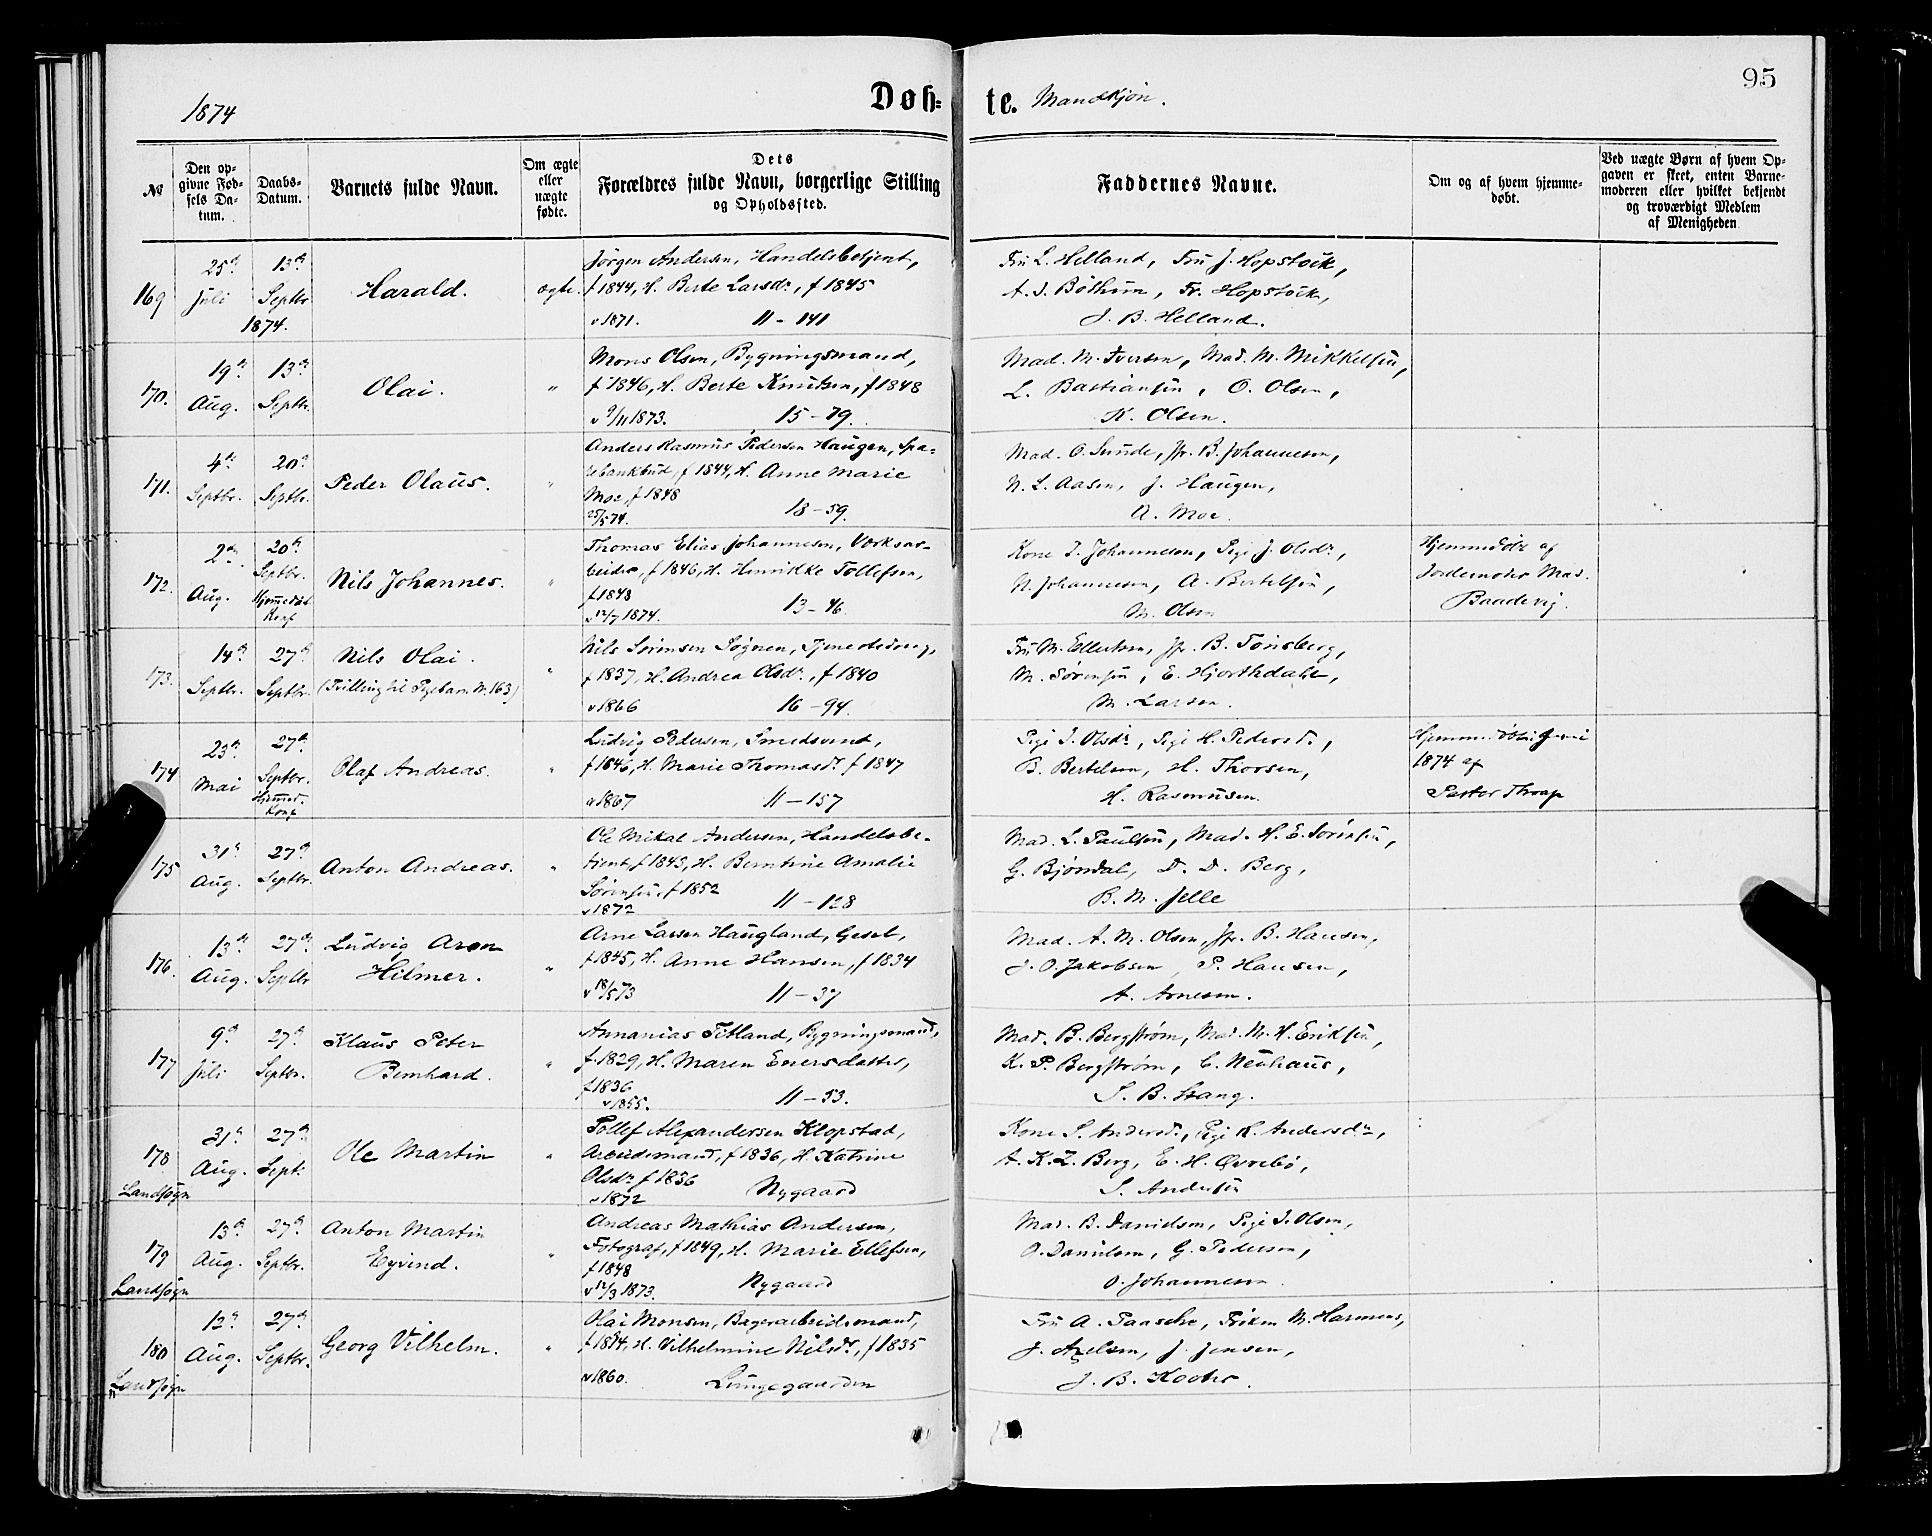 1874
Døb-
te. Mandkjøn.
95
№
Den op-
givne Fød-
sels Da-
tum.
Daabs-
Datum.
Barnets fulde Navn.
Om ægte
eller
uægte
fødte.
Dets
Forældres fulde Navn, borgerlige Stilling
og Opholdssted.
Faddernes Navne.
Om og af hvem hjemme-
døbt.
Ved uægte Børn af hvem Op-
gaven er skeet, enten Barne-
moderen eller hvilket bekjendt
og troværdigt Medlem
af Menigheden
169
25de
Juli
13de
Septbr
1874.
Harald.
ægte.
Jørgen Andersen, Handelsbetjent,
f 1844, H. Berte Larsdr, f 1845
v 1871. 11 - 141
Fru L. Helland, Fru J. Hopstock,
A. J. Bøthun, Fr. Hopstock,
J. B. Helland.
170.
19de
Aug.
13de
Septbr.
Olai.
"
Mons Olsen, Bygningsmand,
f 1846, H. Berte Knutsen, f 1848
v 9/11 1873. 15 - 79.
Mad. M. Iversen, Mad. M. Mikkelsen,
L. Bastiansen, O. Olsen,
K. Olsen.
171.
4de
Septbr.
20de
Septbr.
Peder Olaus.
"
Anders Rasmus Pedersen Haugen, Spa-
rebankbud, f 1844, H. Anne Marie
Moe, f 1848
25/5 74. 18 - 59.
Mad. O. Sunde, Jfr. B. Johannesen,
N. L. Aasen, J. Haugen,
A. Moe.
172.
2den
Aug.
20de
Septbr.
Hjemmedøbt
Konf
Nils Johannes.
"
Thomas Elias Johannesen, Værksar-
beider, f 1846, H. Henrikke Tollefsen,
f 1848
v 12/7 1874. 13 - 46
Kone I. Johannesen, Pige J. Olsdr,
N. Johannesen, A. Bertelsen,
M. Olsen
Hjemmedøbt af
Jordemoder Mad.
Baadevig.
173.
14de
Septbr.
27de
Septbr.
Nils Olai.
(Tvilling til Pigebarn N. 163)
"
Nils Sørensen Søgnen, Tjenestedreng,
f 1837, H. Andrea Olsdr, f 1840
v 1866 16 - 94.
Fru M. Ellertsen, Jfr. B. Tønsberg,
M. Sørensen, E. Hjorthdahl,
M. Larsen.
174
23de
Mai
27de
Septbr.
Hjemmed.
Konf
Olaf Andreas.
"
Ludvig Pedersen, Smedsvend,
f 1846, H. Marie Thomasdr f 1847
v 1867 11 - 157
Pige I. Olsdr, Pige H. Pedersd.,
B. Bertelsen, H. Thorsen,
H. Rasmusen.
1874 af
Pastor Thrap
175
31de
Aug.
27de
Septbr.
Anton Andreas.
"
Ole Mikal Andersen, Handelsbe-
tjent, f 1843, H. Berntine Amalie
Sørensen, f 1852
v 1872 11 - 128
Mad. L. Paulsen, Mad. H. E. Sørensen,
G. Bjørndal, D. D. Berg,
B. M. Jelle
176.
13de
Aug.
27de
Septbr
Ludvig Aron
Hilmer.
"
Arne Larsen Haugland, Gesel,
f 1845, H. Anne Hansen, f 1834
v 18/5 73 11 - 37
Mad. A. M. Olsen, Jfr. B. Hansen,
J. O. Jakobsen, P. Hansen,
A. Arnesen.
177
9de
Juli
27de
Septbr.
Klaus Peter
Bernhard.
"
Annanias Titland, Bygningsmand,
f 1829, H. Maren Enersdatter,
f 1836
v 1855. 11 - 53.
Mad. B. Bergstrøm, Mad. M. H. Eriksen,
K. P. Bergstrøm, C. Neuhaus,
S. B. Stang.
178
Landsogn
31de
Aug.
27de
Sept.
Ole Martin
"
Tollef Alexandersen Klopstad,
Arbeidsmand, f 1836, H. Katrine
Olsdr f 1836
v 1872 Nygaard
Kone S. Andersd., Pige K. Andersdr,
A. K. Z. Berg, E. H. Øvrebø,
S. Andersen
179
Landsogn
13de
Aug.
27de
Septbr.
Anton Martin
Eyvind.
"
Andreas Mathias Andersen,
Fotograf, f 1849, H. Marie Ellefsen,
f 1848
v 12/3 1873. Nygaard
Mad. B. Danielsen, Pige I. Olsen,
O. Danielsen, G. Pedersen,
O. Johannesen.
180
Landsogn
12de
Aug.
27de
Septbr.
Georg Vilhelm.
"
Olai Monsen, Bagerarbeidsmand,
f 1834, H. Vilhelmine Nilsdr, f 1835
v 1860. Lungegaarden
Fru A. Paasche, Frøken M. Harmens,
J. Axelsen, J. Jensen,
J. B. Kooter.